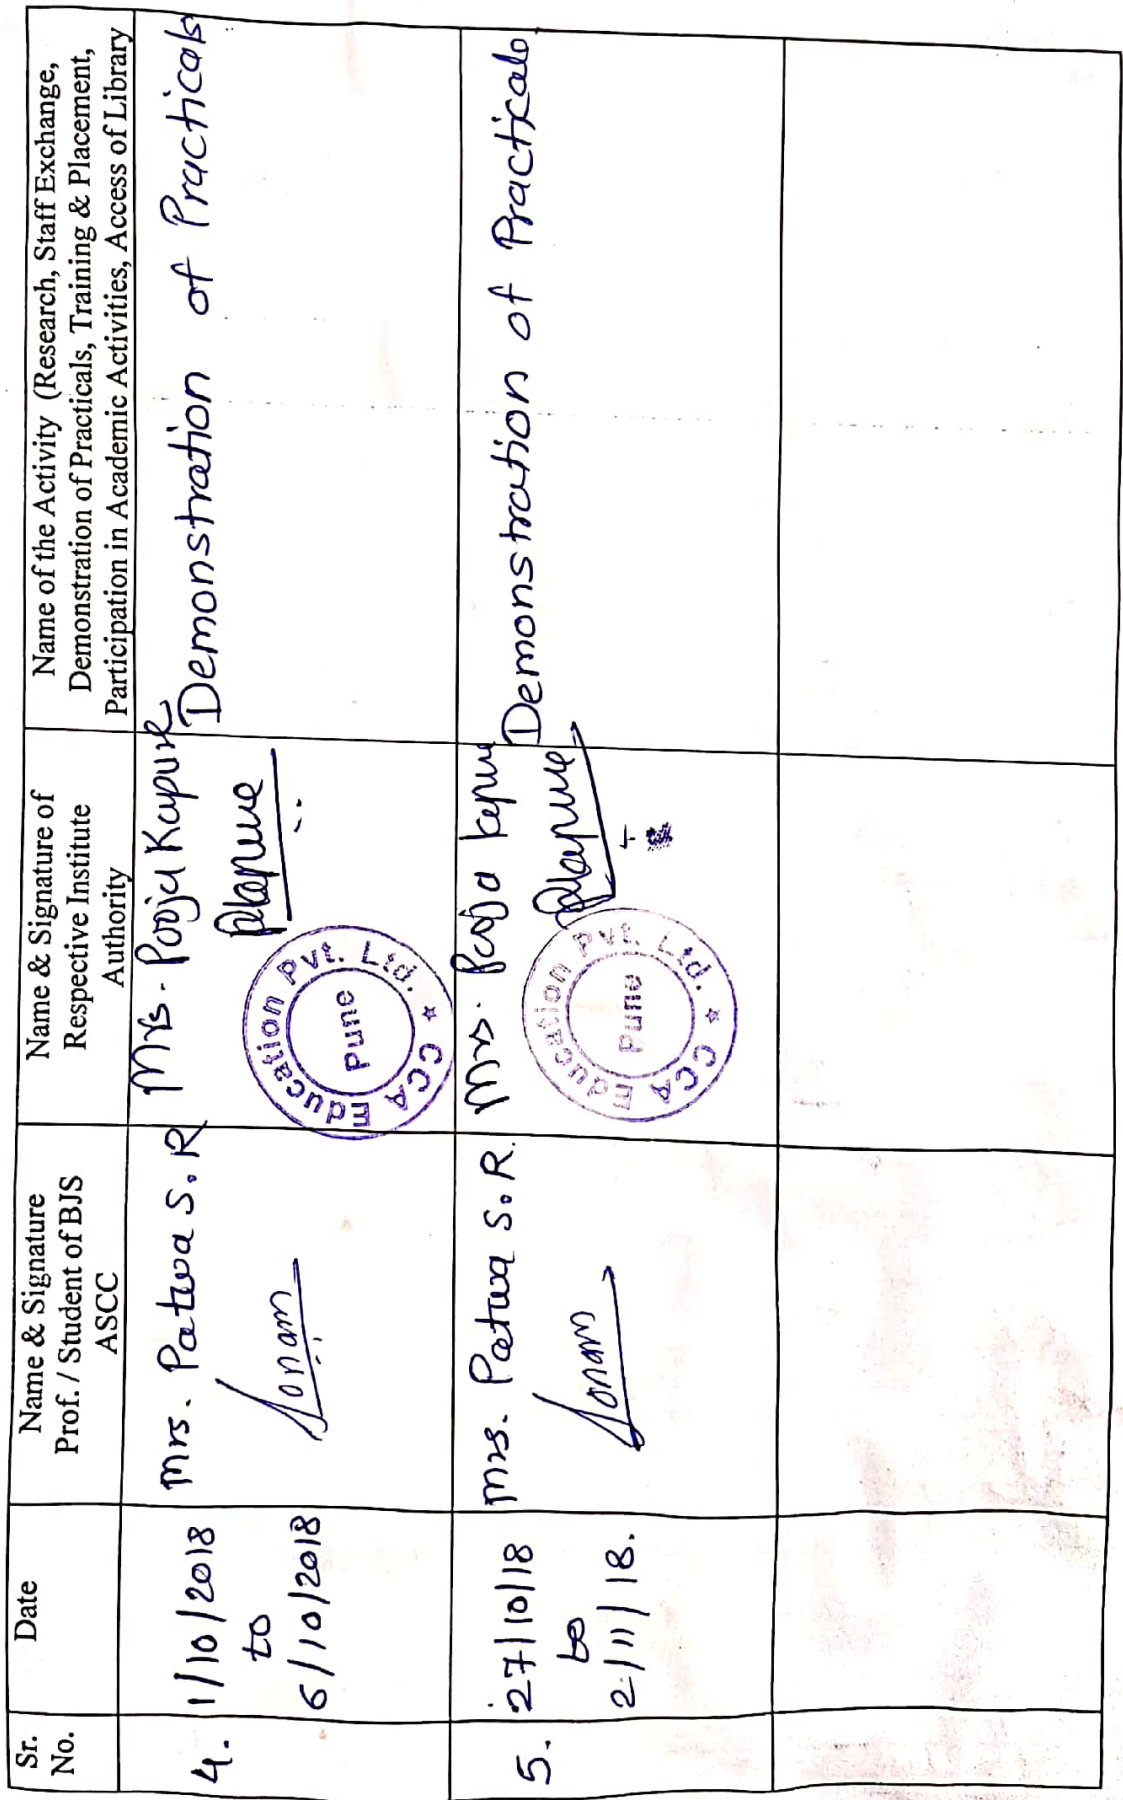 Sr.
No.
Date
Name & Signature
Prof. / Student of BJS
ASCC
Name & Signature of
Respective Institute
Authority
Name of the Activity (Research, Staff Exchange,
Demonstration of Practicals, Training & Placement,
Participation in Academic Activities, Access of Library
4.
1/10/2018
to
6/10/2018
Mrs. Patwa S.R
Sonam
Mrs. Pooja Kapure
PKapure
CCA Education Pvt. Ltd. ★
Pune
Demonstration of Practicals
5.
27/10/18
to
2/11/18.
Mrs. Patwa S.R.
Sonam
Mrs. Pooja Kapure
PKapure
CCA Education Pvt. Ltd. ★
Pune
Demonstration of Practicals